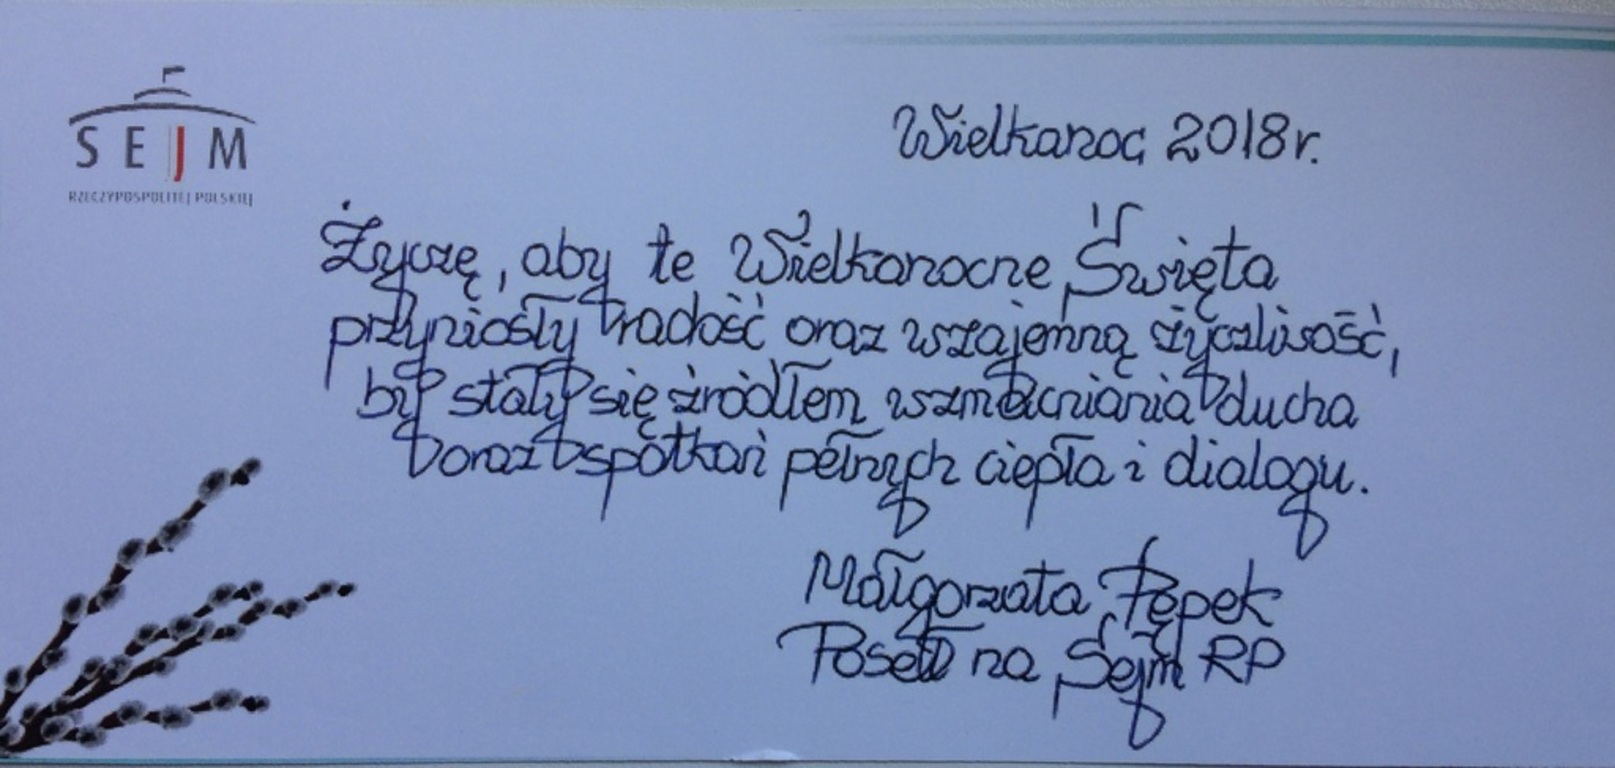 SEJM
RZECZYPOSPOLITEJ POLSKIEJ
Wielkanoc 2018 r.
Życzę, aby te Wielkanocne Święta
przyniosły radość oraz wzajemną życzliwość,
by stały się źródłem wzmacniania ducha
oraz spotkań pełnych ciepła i dialogu.
Małgorzata Pępek
Poseł na Sejm RP